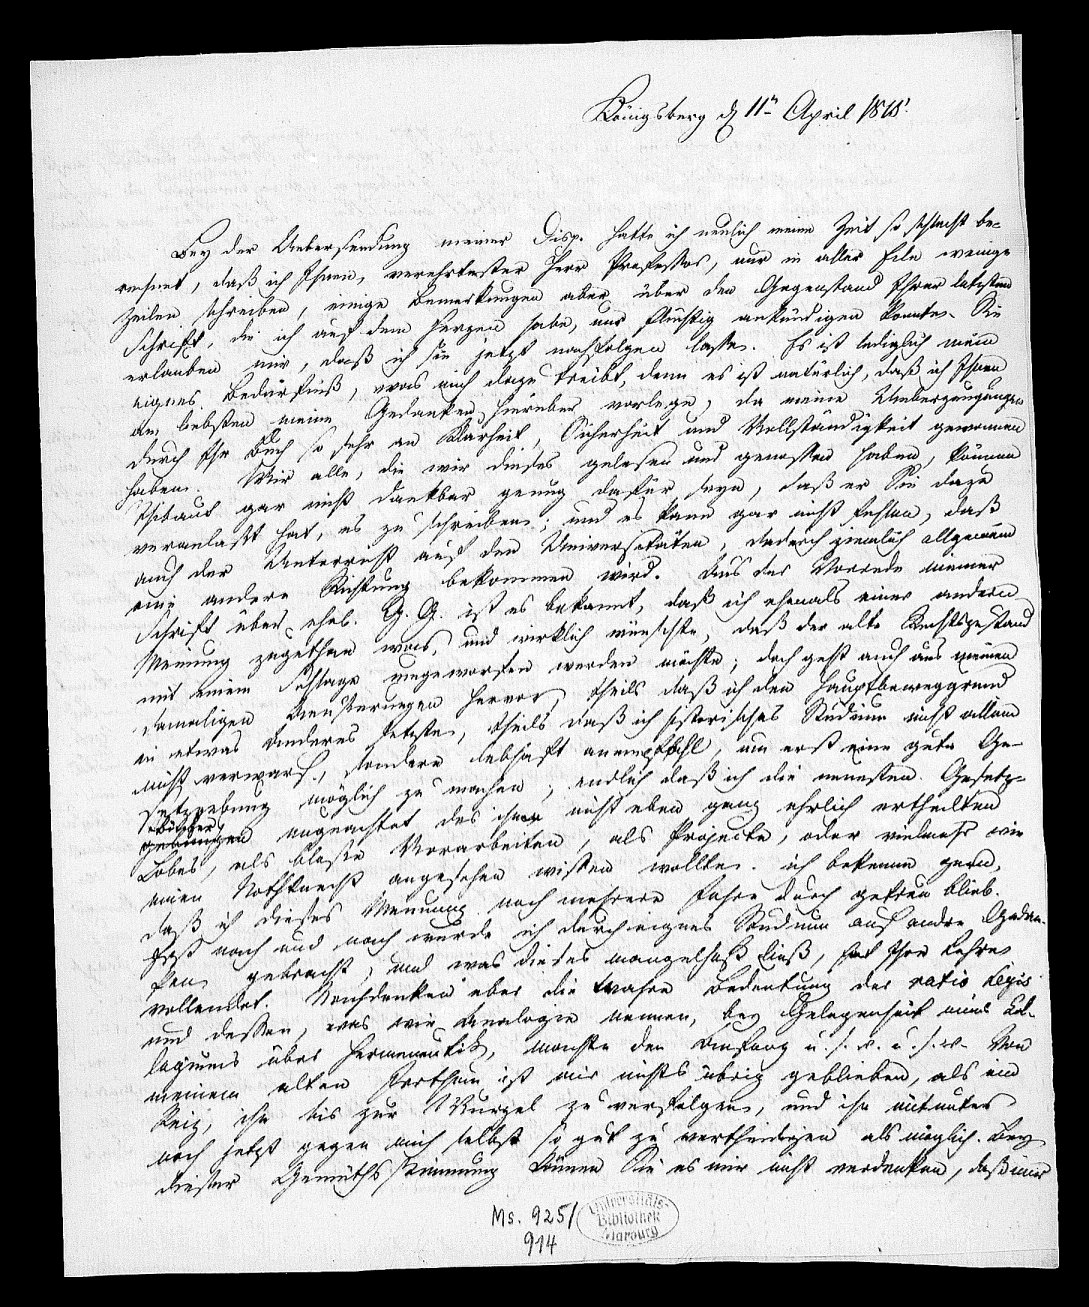 Königsberg d 11n April 1815.
Bey der Uebersendung meiner Disp. hatte ich neulich meine Zeit so schlecht be-
rechnet, daß ich Ihnen, verehrtester Herr Professor, nur in aller Eile wenige
Zeilen schreiben, einige Bemerkungen aber über den Gegenstand Ihrer letzten
Schrift, die ich auf dem Herzen habe, nur flüchtig ankündigen konnte. Sie
erlauben mir, daß ich sie jetzt nachfolgen lasse. Es ist lediglich mein
eignes Bedürfniß, was mich dazu treibt, denn es ist natürlich, daß ich Ihnen
am liebsten meine Gedanken hierüber vorlege, da meine Ueberzeugungen
durch Ihr Buch so sehr an Klarheit, Sicherheit und Vollständigkeit gewonnen
haben. Wir alle, die wir dieses gelesen und genossen haben, können
Thibaut gar nicht dankbar genug dafür seyn, daß er Sie dazu
veranlaßt hat, es zu schreiben; und es kann gar nicht fehlen, daß
auch der Unterricht auf den Universitäten, dadurch ziemlich allgemein
eine andere Richtung bekommen wird. Aus der Vorrede meiner
Schrift über ehel. G. G. ist es bekannt, daß ich ehemals einer andern
Meinung zugethan war, und wirklich wünschte, daß der alte Rechtszustand
mit einem Schlage umgeworfen werden möchte; doch geht auch aus meinen
damaligen Aeusserungen hervor, theils daß ich den Hauptbeweggrund
in etwas Anderes setzte, theils daß ich historisches Studium nicht allein
nicht verwarf, sondern lebhaft anempfohl, um erst eine gute Ge-
setzgebung möglich zu machen; endlich daß ich die neuesten Gesetz-
bücher ungeachtet des ihnen nicht eben ganz ehrlich ertheilten
Lobes, als bloße Vorarbeiten, als Projecte, oder vielmehr wie
einen Nothknecht angesehen wissen wollte. ich bekenne gern,
daß ich dieser Meinung noch mehrere Jahre durch getreu blieb.
Erst nach und nach wurde ich durch eignes Studium auf andre Gedan-
ken gebracht, und was dieses mangelhaft ließ, hat Ihre Lehre
vollendet. Nachdenken über die wahre Bedeutung der ratio legis
und dessen, was wir Analogie nennen, bey Gelegenheit eines Col-
legiums über Hermeneutik, machte den Anfang u. s. w. u. s. w. Von
meinem alten Irrthum ist mir nichts übrig geblieben, als ein
Reiz, ihn bis zur Wurzel zu verfolgen, und ihn mitunter
noch jetzt gegen mich selbst so gut zu vertheidigen als möglich. Bey
dieser Gemüthsstimmung können Sie es mir nicht verdenken, daß mir
Ms. 925/
914
Universitäts-
Bibliothek
Marburg